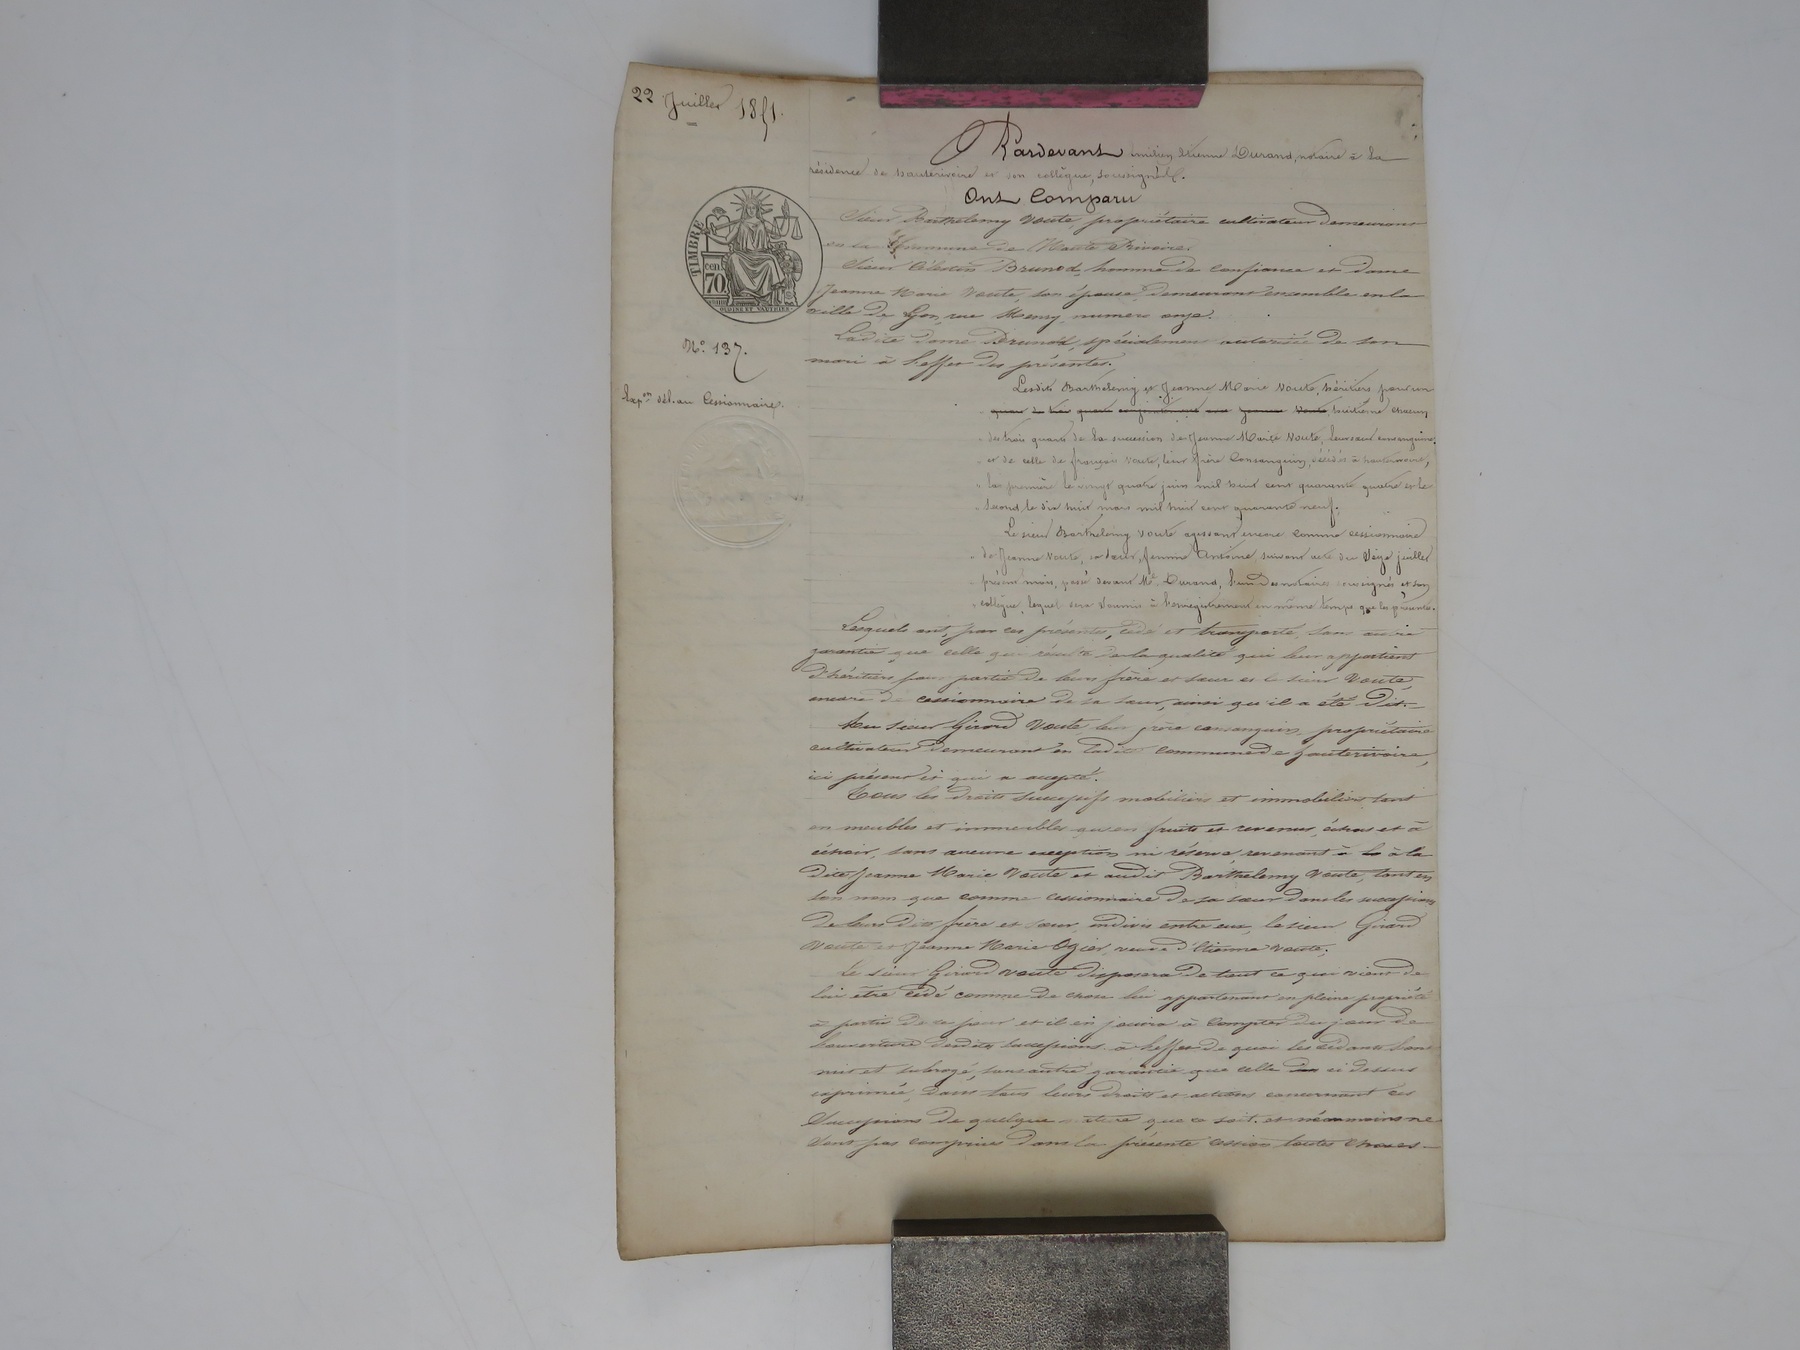 22 Juillet 1851.
Pardevant Etienne Durand, notaire à la
résidence de hauterivoire et son collègue, soussignés.
Ont Comparu
Sieur Barthelemy Voute, propriétaire cultivateur demeurant
en la Commune de Haute Rivoire.
Sieur Célestin Brunod, homme de confiance et dame
Jeanne Marie Voute, son épouse, demeurant ensemble en la
ville de Lyon, rue Henry, numero onze.
Ladite dame Brunod, spécialement autorisée de son
mari à l'effet des présentes.
TIMBRE
cen.
70.
N.º 137.
Exp.on dél. au Cessionnaire.
Lesdits Barthelemy et Jeanne Marie Voute, héritiers pour un
huitième chacun
des trois quarts de la succession de Jeanne Marie Voute, leur sœur consanguine,
et de celle de françois Voute, leur frère Consanguin, décédés à hauterivoire,
la première le vingt quatre juin mil huit cent quarante quatre et le
second, le dix huit mars mil huit cent quarante neuf.
Le sieur Barthelemy Voute agissant encore comme cessionnaire
de Jeanne Voute, sa sœur, femme Antoine suivant acte du seize juillet
présent mois, passé devant Me. Durand, l'un des notaires soussignés et son
collègue, lequel sera soumis à l'enregistrement en même temps que les présentes.
Lesquels ont, par ces présentes, cédé et transporté, sans autre
garantie que celle qui résulte de la qualité qui leur appartient
d'héritiers pour partie de leurs frère et sœur et le sieur Voute
encore de cessionnaire de sa sœur, ainsi qu'il a été dit.
Au sieur Girard Voute, leur frère consanguin, propriétaire
cultivateur demeurant en ladite commune de hauterivoire,
ici présent et qui a accepté.
Tous les droits successifs mobiliers et immobiliers tant
en meubles et immeubles qu'en fruits et revenus, échus et à
échoir, sans aucune exception ni réserve revenant à la
dite Jeanne Marie Voute et audit Barthelemy Voute, tant en
son nom que comme cessionnaire de sa sœur dans les successions
de leurs dits frère et sœur, indivis entre eux, le sieur Girard
Voute et Jeanne Marie Ogier, veuve d'Etienne Voute.
Le sieur Girard Voute disposera de tout ce qui vient de
lui être cédé comme de chose lui appartenant en pleine propriété
à partir de ce jour et il en jouira à compter du jour de
l'ouverture desdites successions à l'effet de quoi les cédants l'ont
mis et subrogé, sans autre garantie que celle ci dessus
exprimée, dans tous leurs droits et actions concernant ces
successions de quelque nature que ce soit. et néanmoins ne
sont pas comprises dans la présente cession toutes choses